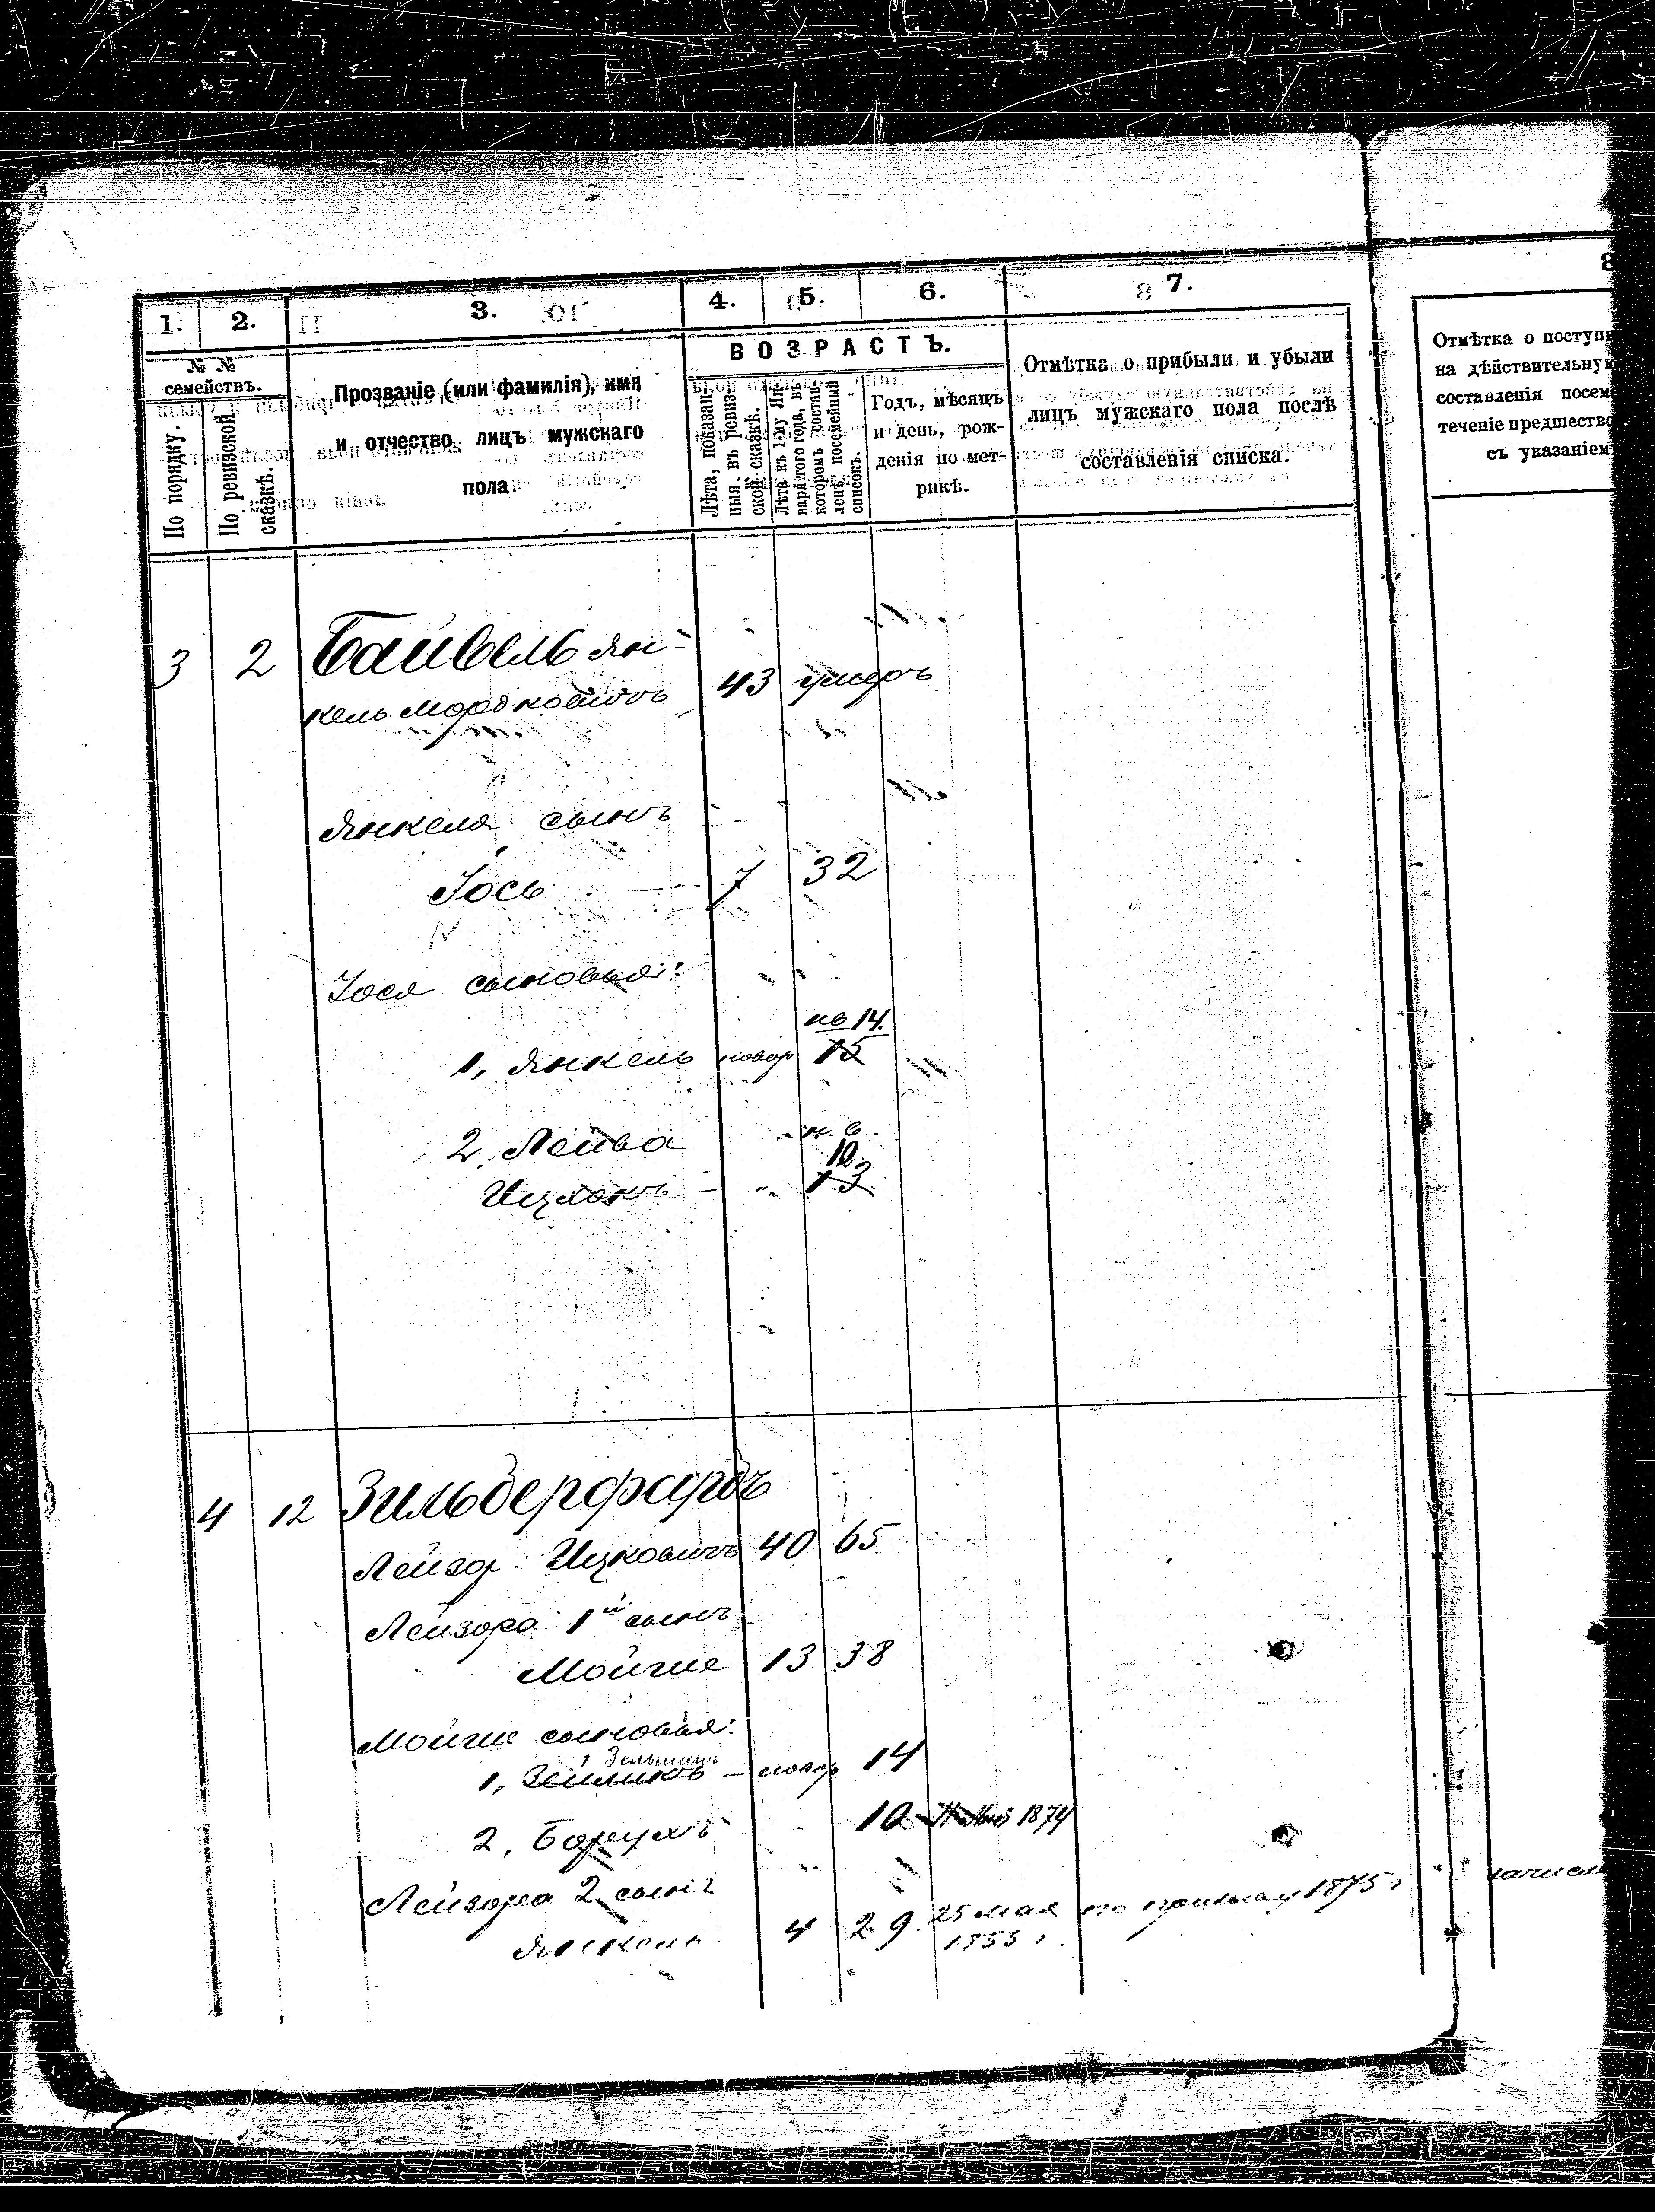 1. 2. 3. 4. 5. 6. 7. 8
№ №
семействъ.
По порядку.
По ревизской
сказкѣ.
Прозваніе (или фамилія), имя
и отчество лицъ мужскаго
пола
ВОЗРАСТЪ.
Лѣта, показан-
ныя въ ревиз-
ской сказкѣ.
Лѣта къ 1-му Ян-
варя того года, въ
которомъ состав-
ленъ посемейный
списокъ.
Годъ, мѣсяцъ
и день, рож-
денія по мет-
рикѣ.
Отмѣтка о прибыли и убыли
лицъ мужскаго пола послѣ
составленія списка.
Отмѣтка о поступ
на дѣйствительную
составленія посем
теченіе предшество
съ указаніем
3 2 Байвель Ян-
кель Мордковичъ 43 умеръ
Янкеля сынъ
Іось 7 32
Іося сыновья:
нв 14.
1, Янкель новор 15
2, Лейба н.в.
10.
Ицхокъ - " 13
4 12 Зильберфарбъ
Лейзор Ицковичъ 40 65
Лейзора 1й сынъ
Мойше 13 38
Мойше сыновья:
Зельманъ
1, Зейликъ - новор 14
2, Борухъ 10 1874
Лейзора 2 сынъ
Янкель 4 29 25 мая по призыву 1875 г
1855 г. зачисл